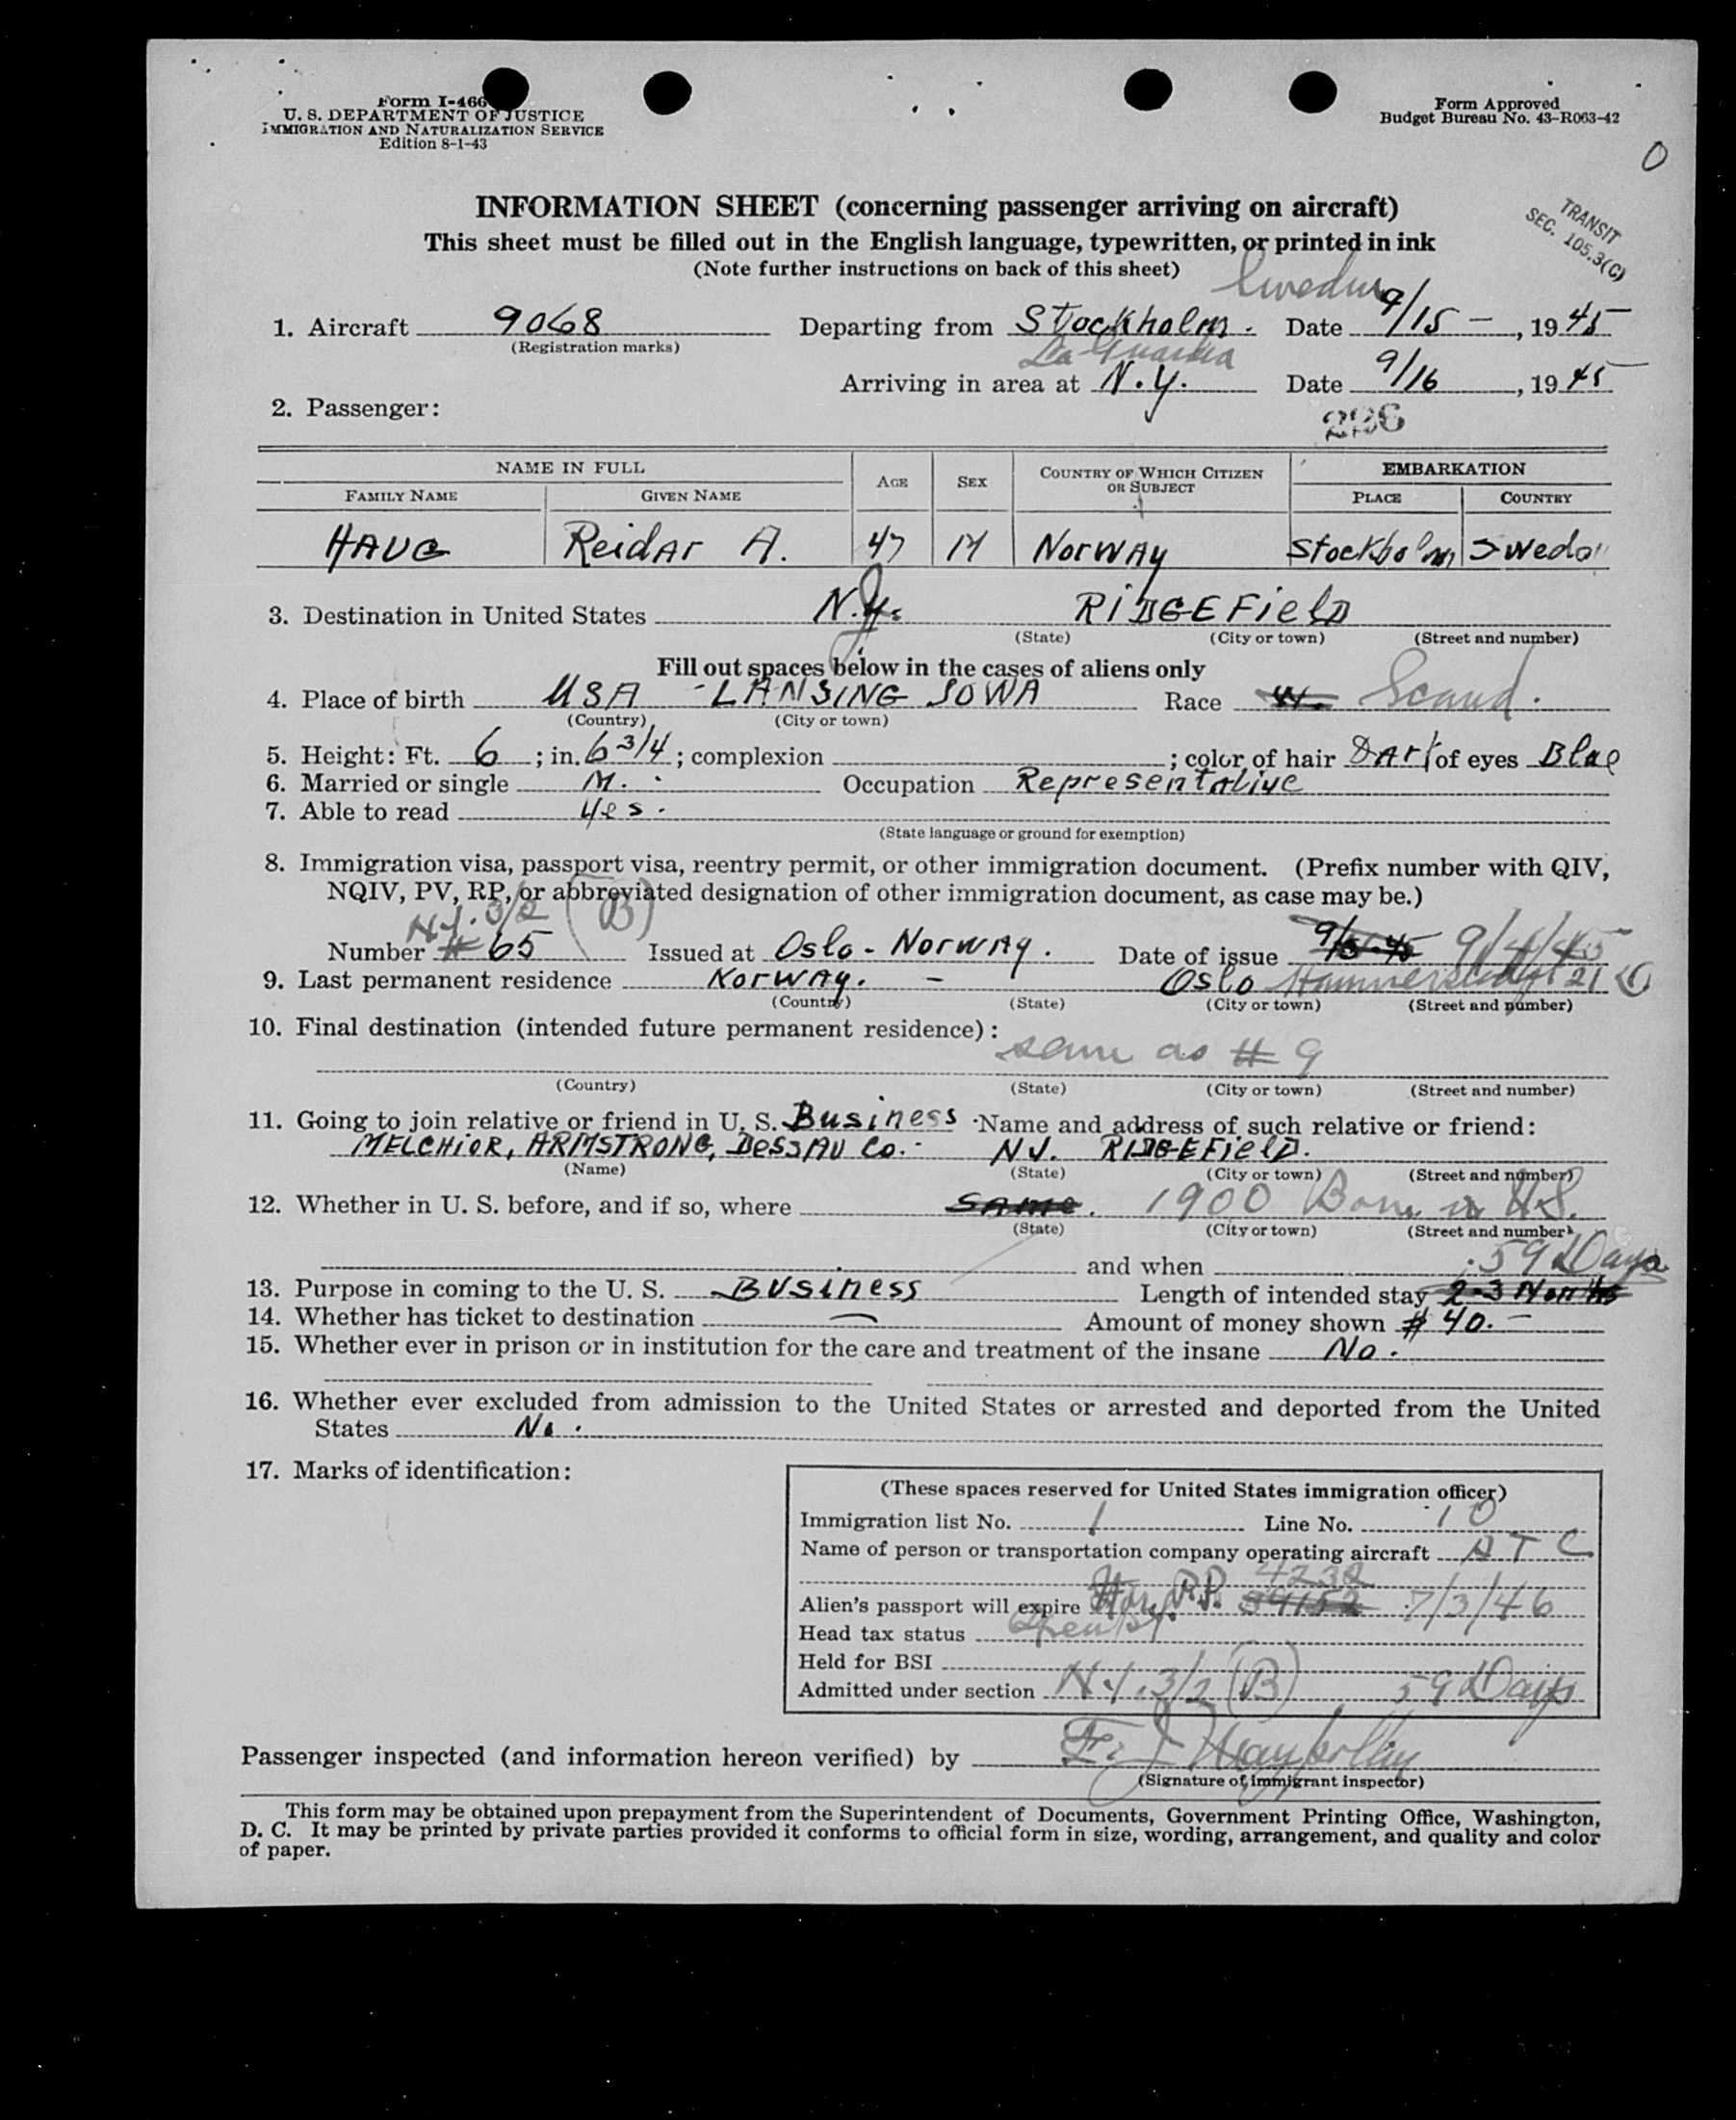 Form I-466
U. S. DEPARTMENT OF JUSTICE
IMMIGRATION AND NATURALIZATION SERVICE
Edition 8-1-43
Form Approved
Budget Bureau No. 43-R063-42
O
INFORMATION SHEET (concerning passenger arriving on aircraft)
This sheet must be filled out in the English language, typewritten, or printed in ink
(Note further instructions on back of this sheet)
TRANSIT
SEC. 105.3(C)
Sweden
1. Aircraft 9068 Departing from Stockholm. Date 9/15 - , 19 45
(Registration marks)
La Guardia
Arriving in area at N.Y. Date 9/16 , 19 45
2. Passenger: 236
NAME IN FULL AGE SEX COUNTRY OF WHICH CITIZEN OR SUBJECT EMBARKATION
FAMILY NAME GIVEN NAME PLACE COUNTRY
HAUG Reidar A. 47 M Norway Stockholm Sweden
3. Destination in United States N.J. RIDGEFIELD
(State) (City or town) (Street and number)
Fill out spaces below in the cases of aliens only
4. Place of birth USA - LANSING IOWA Race W. Scand.
(Country) (City or town)
5. Height: Ft. 6 ; in. 6 3/4 ; complexion ; color of hair DArk of eyes Blue
6. Married or single M. Occupation Representative
7. Able to read yes.
(State language or ground for exemption)
8. Immigration visa, passport visa, reentry permit, or other immigration document. (Prefix number with QIV,
NQIV, PV, RP, or abbreviated designation of other immigration document, as case may be.)
3/2 (B)
Number # 65 Issued at Oslo - Norway. Date of issue 9/5-45 9/4/45
9. Last permanent residence Norway. - Oslo 21
(Country) (State) (City or town) (Street and number)
10. Final destination (intended future permanent residence):
same as # 9
(Country) (State) (City or town) (Street and number)
11. Going to join relative or friend in U. S. Business Name and address of such relative or friend:
MELCHIOR, ARMSTRONG, DESSAU Co. - NJ. RIDGEFIELD.
(Name) (State) (City or town) (Street and number)
12. Whether in U. S. before, and if so, where Same. 1900 Born in U.S.
(State) (City or town) (Street and number)
and when 59 Days
13. Purpose in coming to the U. S. BUSINESS Length of intended stay 2-3 Months
14. Whether has ticket to destination — Amount of money shown $ 40. -
15. Whether ever in prison or in institution for the care and treatment of the insane No.
16. Whether ever excluded from admission to the United States or arrested and deported from the United
States No.
17. Marks of identification:
(These spaces reserved for United States immigration officer)
Immigration list No. 1 Line No. 10
Name of person or transportation company operating aircraft ATC
4232
Alien's passport will expire P.P. 39152 7/3/46
Head tax status
Held for BSI
Admitted under section 3/2 (B) 59 Days
Passenger inspected (and information hereon verified) by F. J.
(Signature of immigrant inspector)
This form may be obtained upon prepayment from the Superintendent of Documents, Government Printing Office, Washington,
D. C. It may be printed by private parties provided it conforms to official form in size, wording, arrangement, and quality and color
of paper.